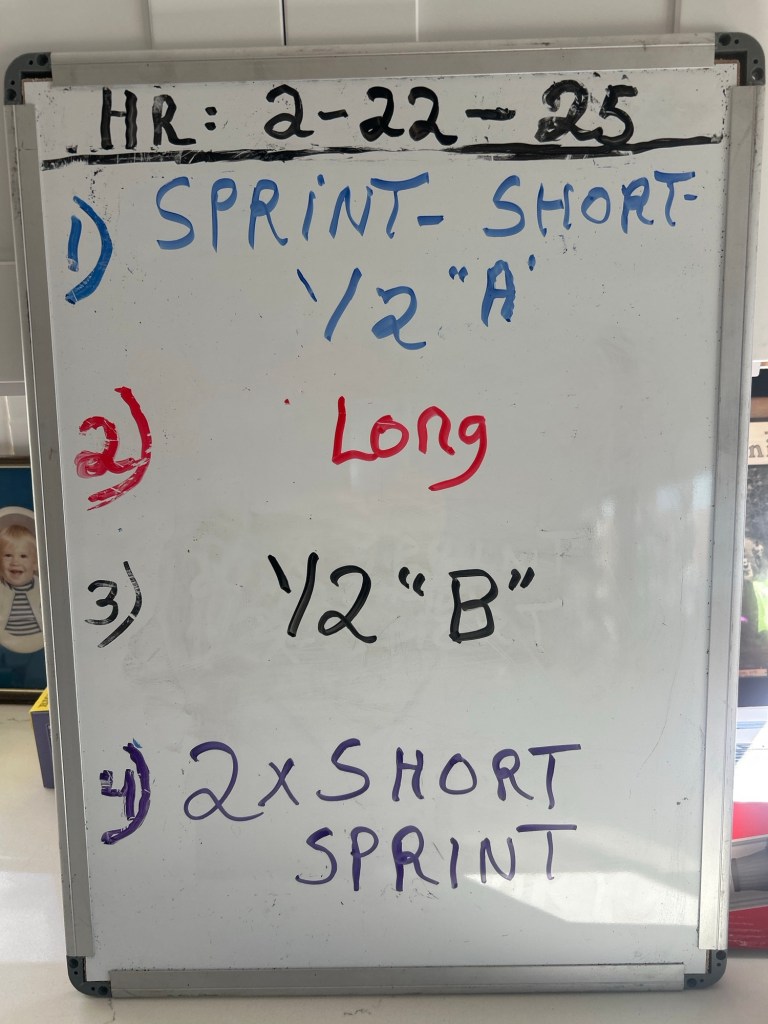 HR: 2-22-25
1) SPRINT- SHORT-
1/2 "A'
2) Long
3) 1/2 "B"
4) 2x SHORT
SPRINT